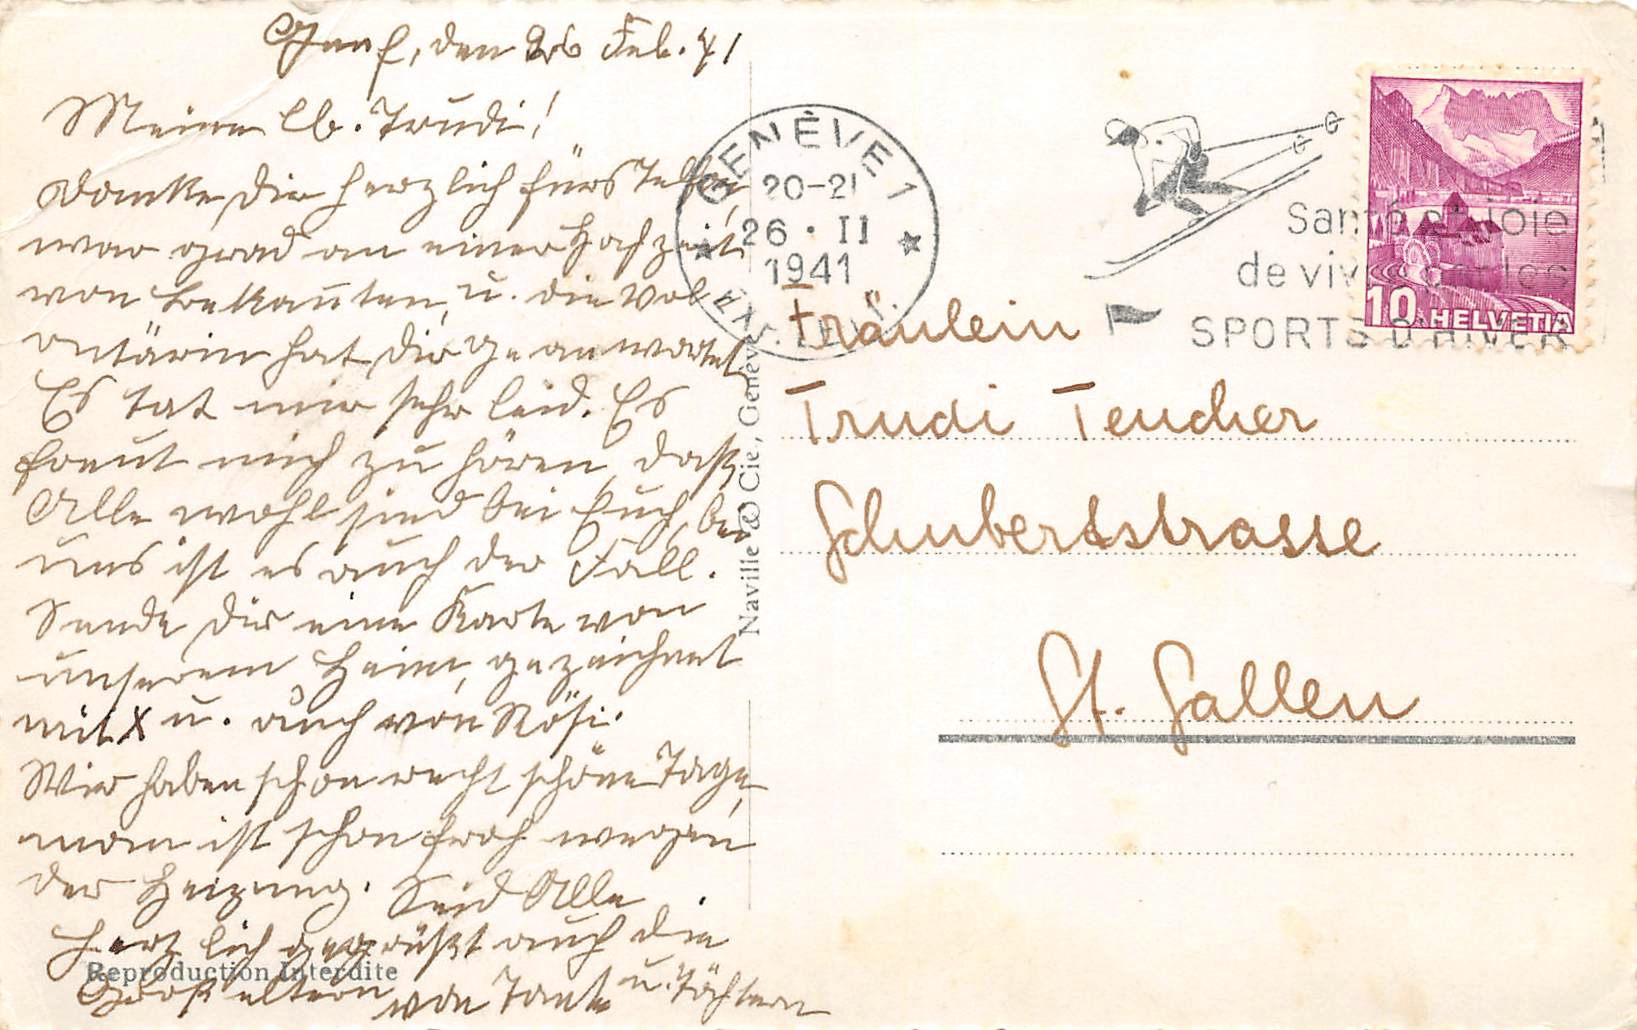 Genf, den 26 Feb. 41
Meine lb. Trudi!
Danke Dir herzlich fürs Telefon
war grad an einer Hochzeit
von Bekannten, u. die Vol-
ontärin hat Dir geantwortet
Es tat mir sehr leid. Es
freut mich zu hören, daß
Alle wohl sind bei Euch, bei
uns ist es auch der Fall.
Sende Dir eine Karte von
unserem Heim, gezeichnet
mit X u. auch von Rösi.
Wir haben schon recht schöne Tage,
man ist schon froh wegen
der Heizung. Seid Alle
herzlich gegrüßt auch die
Großeltern von Tante u. Töchtern
Reproduction Interdite
Naville & Cie, Genève
GENÈVE 1
20-21
26 · II
1941
Santé et joie
de vivre par les
SPORTS D'HIVER
10 HELVETIA
Fräulein
Trudi Teucher
Schubertstrasse
St. Gallen